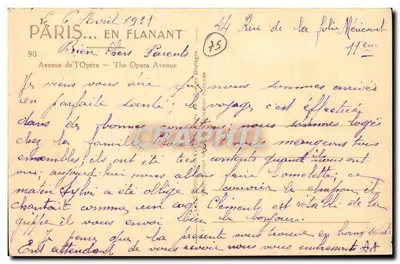 Le 6 Avril 1931
24 Rue de la folie Méricourt
PARIS... EN FLANANT
75
11em
90
Bien chers Parents
Avenue de l'Opéra - The Opera Avenue
Je viens vous dire que nous sommes arrivés
en parfaite santé; le voyage c'est effectué
dans de bonnes conditions nous sommes logés
chez la famille nous mangeons tous
ensembles; ils ont été très contents quand ils nous ont
vu; aujourd'hui nous allons faire omelette; ce
matin a été obligé de le chapeau il
chantait comme un coq; Clément est rétabli de la
grippe il vous envoi bien le bonjour.
Je pense que la présente vous trouve en bonne santé
En attendant de vous revoir nous vous embrassons